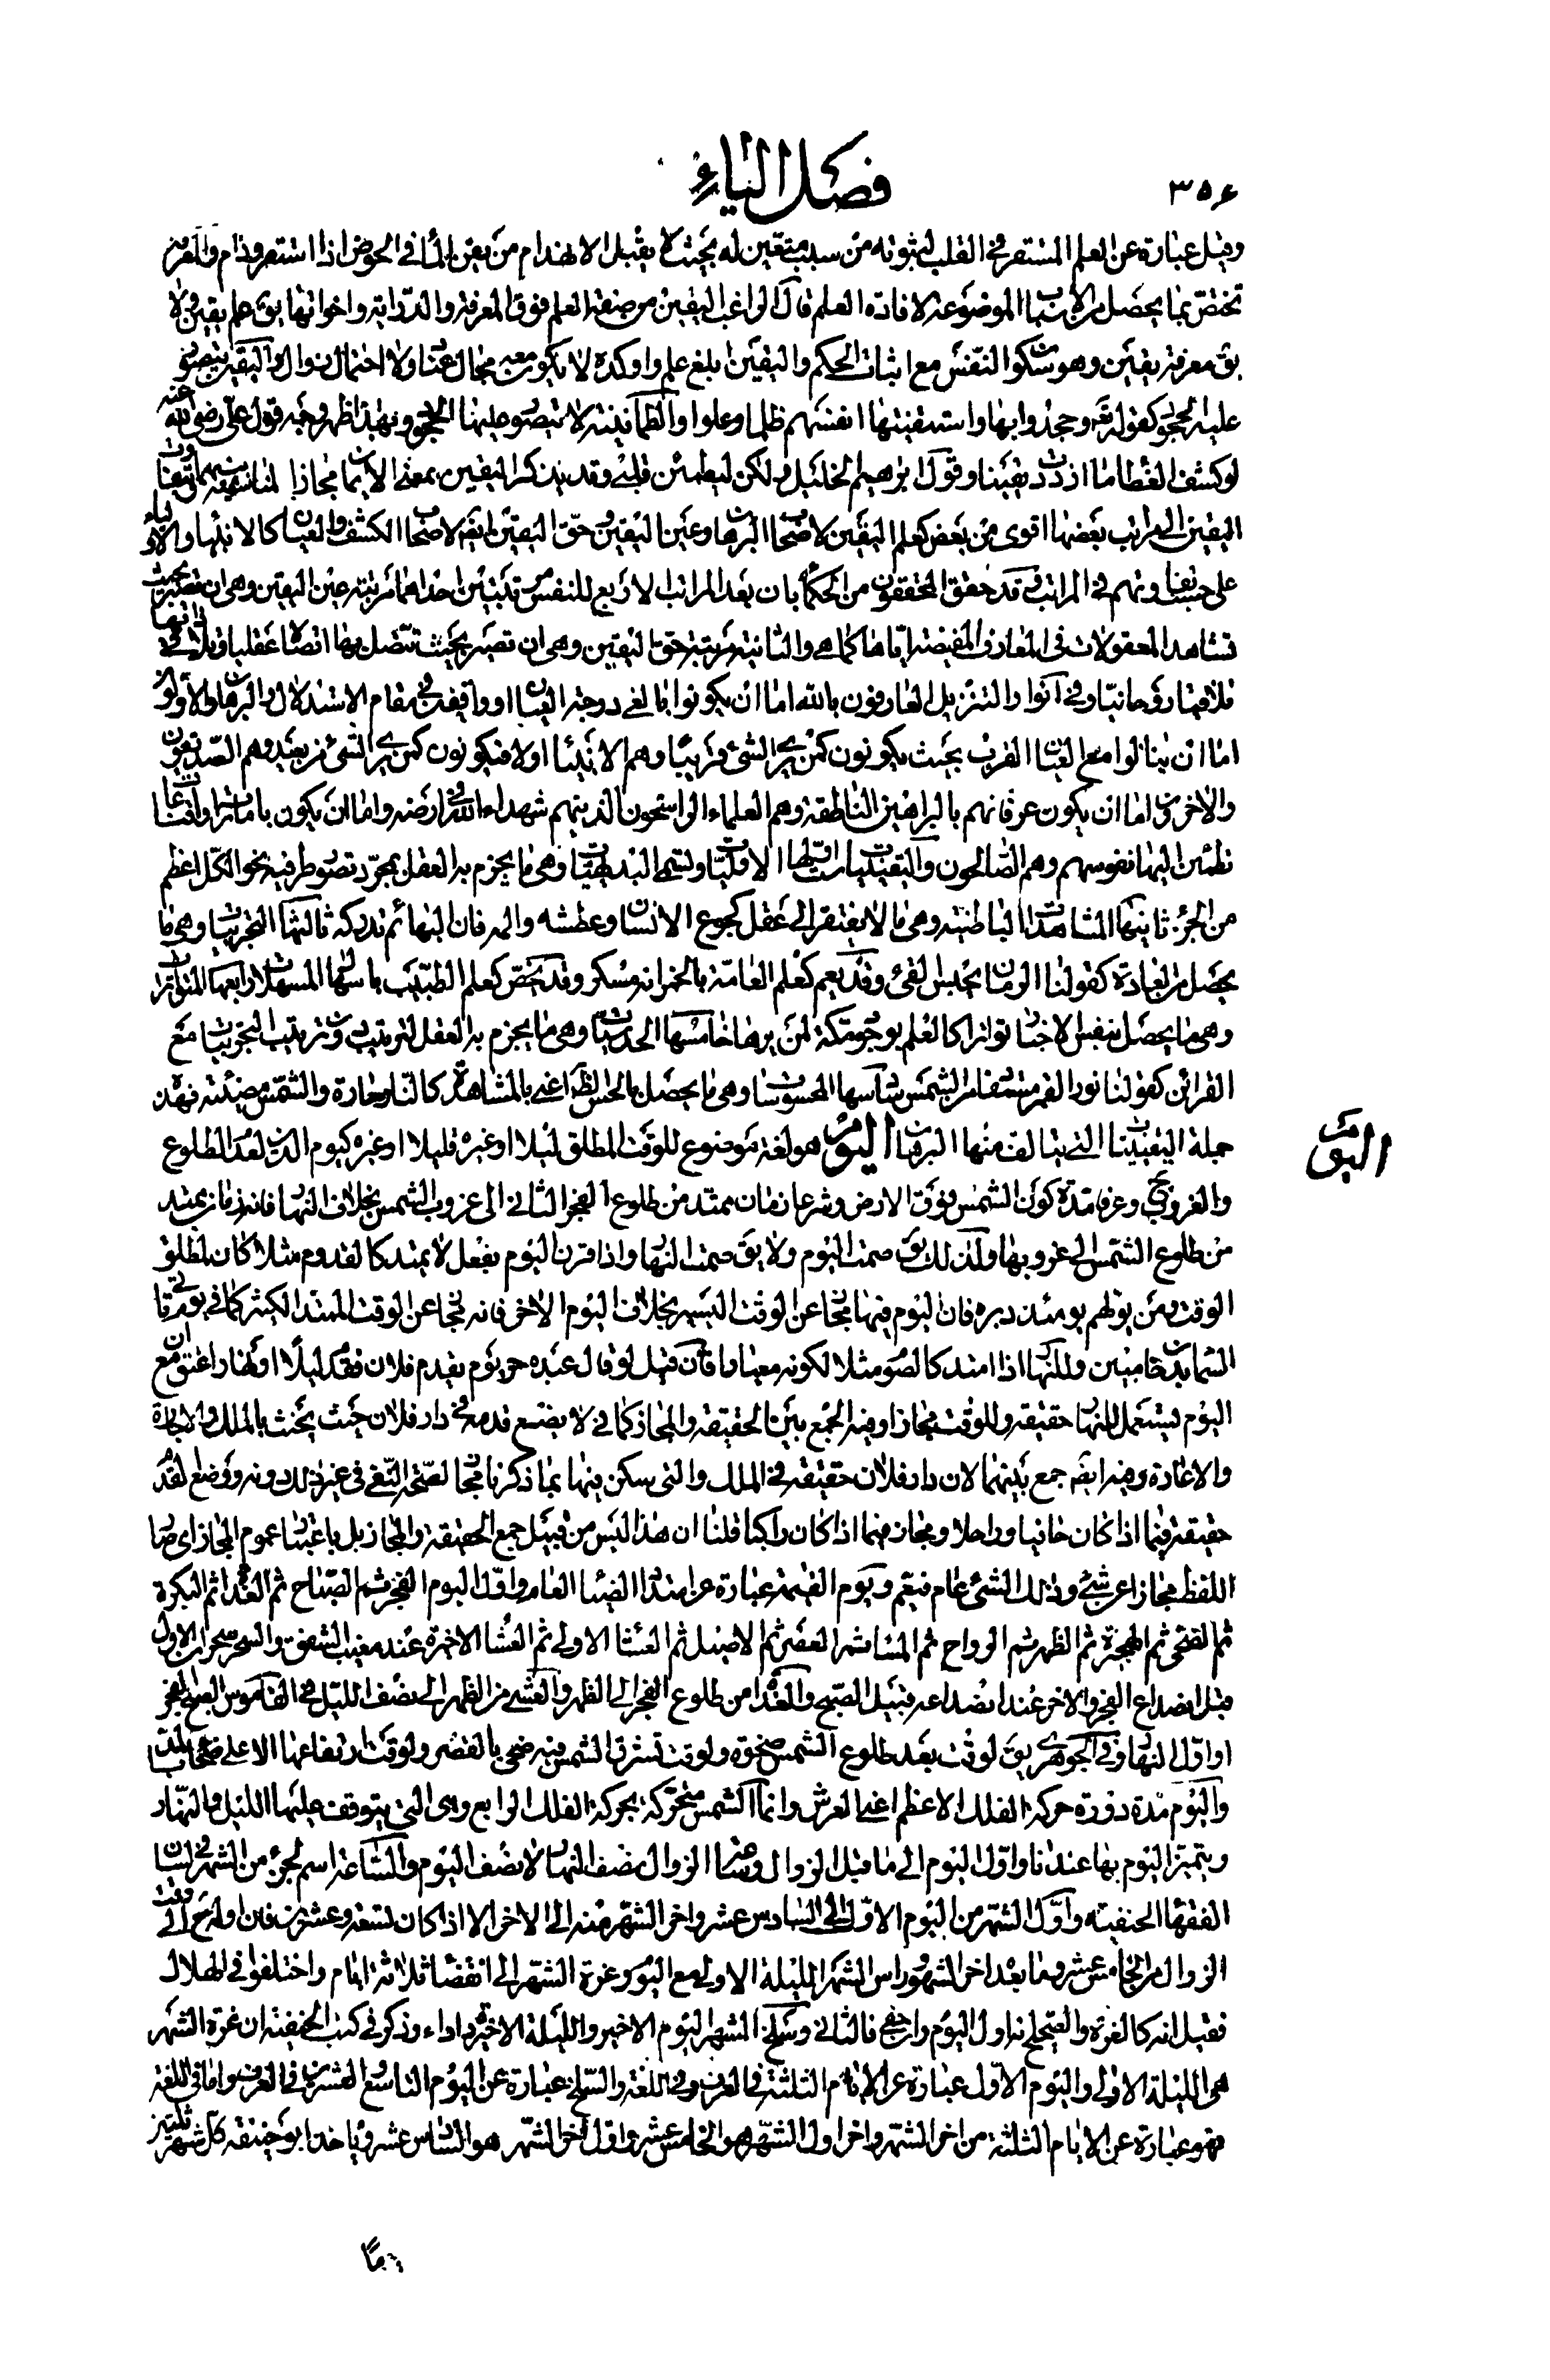 ٣٥٤
فصل الياء
وقيل عبارة عن العلم المستقر في القلب لثبوته من سبب متعين له بحيث لا يقبل الانهدام من يقن الماء في الحوض اذا استقر ودام والمعرفة
تختص بما يحصل من الاسباب الموضوعة لافادة العلم قال الراغب اليقين من صفة العلم فوق المعرفة والدراية واخواتها يق علم يقين ولا
يق معرفة يقين وهو سكون النفس مع اثبات الحكم واليقين ابلغ علم واوكده لا يكون معه مجال عناد ولا احتمال زوال واليقين يتصور
عليه الجحود كقوله تعه وجحدوا بها واستيقنتها انفسهم ظلما وعلوا والطمأنينة لا يتصور عليها الجحود وبهذا ظهر وجه قول علي رضي الله عنه
لو كشف الغطا ما ازددت يقينا وقول ابراهيم الخليل ولكن ليطمئن قلبي وقد يذكر اليقين بمعنى الايمان مجازا لمناسبة بينهما ويتفاوت
اليقين الى مراتب بعضها اقوى من بعض كعلم اليقين لاصحاب البرهان وعين اليقين وحق اليقين ايضه لاصحاب الكشف والعيان كالانبياء والاولياء
على حسب تفاوتهم في المراتب وقد حقق المحققون من الحكماء بان بعد المراتب الاربع للنفس مرتبتين احداهما مرتبة عين اليقين وهي ان تصير بحيث
تشاهد المعقولات في المعارف المفيضة اياها كما هي والثانية مرتبة حق اليقين وهي ان تصير بحيث تتصل بها اتصالا عقليا وتلاقي ذاتها
تلاقيا روحانيا وفي انوار التنزيل العارفون بالله اما ان يكونوا بالغي درجة العيان او واقفين في مقام الاستدلال والبرهان والاولون
اما ان ينالوا مع العيان القرب بحيث يكونون كمن يرى الشئ قريبا وهم الانبيا اولا فيكونون كمن يرى الشئ من بعيد وهم الصديقون
والاخرون اما ان يكون عرفانهم بالبراهين القاطعة وهم العلماء الراسخون الذينهم شهداء الله في ارضه واما ان يكون بامارات واقناعات
تطمئن اليها نفوسهم وهم الصالحون واليقينيات ست اولها الاوليات وتسمى البديهيات وهي ما يجزم به العقل بمجرد تصور طرفيه نحو الكل اعظم
من الجزء ثانيها المشاهدات الباطنية وهي ما لا يفتقر الى عقل كجوع الانسان وعطشه والمه فان البهائم تدركه ثالثها التجريبيات وهي ما
يحصل من العادة كقولنا الرمان يحبس القئ وقد يعم كعلم العامة بالخمر انه مسكر وقد يخص كعلم الطبيب باسهال المسهلات رابعها المتواترات
وهي ما يحصل بنفس الاخبار تواترا كالعلم بوجود مكة لمن يرها خامسها الحدسيات وهي ما يجزم به العقل لترتيب دون ترتيب التجريبيات مع
القرائن كقولنا نور القمر مستفاد من الشمس سادسها المحسوسات وهي ما يحصل بالحس الظاهر اعني بالمشاهدة كالنار حارة والشمس مضيئة فهذه
جملة اليقينيات التي يتالف منها البرهان اليوم هو لغة موضوع للوقت المطلق ليلا او غيره قليلا او غيره كيوم الدين لعدم الطلوع
والغروب ح وعرفا مدة كون الشمس فوق الارض وشرعا زمان ممتد من طلوع الفجر الثاني الى غروب الشمس بخلاف النهار فانه زمان ممتد
من طلوع الشمس الى غروبها ولذلك يق صمت اليوم ولا يق صمت النهار واذا قرن اليوم بفعل لا يمتد كالقدوم مثلا كان لمطلق
الوقت ومن يولهم يومئذ دبره فان اليوم فيها مجاز عن الوقت اليسير بخلاف اليوم الاخر فانه مجاز عن الوقت الممتد الكثير كما في يوم تأتي
السماء بدخان مبين وللنهار اذا امتد كالصوم مثلا لكونه معيارا فان قيل لو قال عبده حر يوم يقدم فلان فقدم ليلا او نهارا عتق مع ان
اليوم يستعمل للنهار حقيقة وللوقت مجازا وفيه الجمع بين الحقيقة والمجاز كما في لا يضع قدمه في دار فلان حيث يحنث بالملك والاجارة
والاعارة وفيه ايضه جمع بينهما لان دار فلان حقيقة في الملك والتي يسكن فيها بما ذكرنا مجاز لصحة النفي في غير ذلك دونه ووضع القدم
حقيقة فيما اذا كان حافيا وراجلا ومجاز فيما اذا كان راكبا قلنا ان هذا ليس من قبيل جمع الحقيقة والمجاز بل باعتبار عموم المجاز اي صار
اللفظ مجازا عن شئ وذلك الشئ عام فيعم ويوم القيمة عبارة عن امتداد الضياء العام واول اليوم الفجر ثم الصباح ثم الغداة ثم البكرة
ثم الضحى ثم الهجيرة ثم الظهر ثم الرواح ثم المساء ثم العصر ثم الاصيل ثم العشا الاولى ثم العشا الاخيرة عند مغيب الشفق والسحر سحران الاول
قبل انصداع الفجر والاخر عند انصداعه قبيل الصبح والغداة من طلوع الفجر الى الظهر والعشي من الظهر الى نصف الليل في القاموس الصبح الفجر
او اول النهار وفي الجوهري يق لوقت بعد طلوع الشمس ضحوة ولوقت تشرق الشمس فيه ضحى بالقصر ولوقت ارتفاعها الاعلى ضحاء بالمد
واليوم مدة دورة حركة الفلك الاعظم اعني العرش وانما الشمس متحركة بحركة الفلك الرابع وهي التي يتوقف عليها الليل والنهار
ويتميز اليوم بها عندنا واول اليوم الى ما قبل الزوال وساعة الزوال نصف النهار لا نصف اليوم والساعة اسم لجزء من الشهر في لسان
الفقها الحنفية واول الشهر من اليوم الاول الى السادس عشر واخر الشهر منه الى الاخر الا اذا كان تسعة وعشرين فان اوله ح الى وقت
الزوال من الخامس عشر وما بعد اخر الشهر وراس الشهر الليلة الاولى مع اليوم وغرة الشهر الى انقضا ثلاثة ايام واختلفوا في الهلال
فقيل انه كالغرة والصحيح انه اول اليوم وان خفي فالثاني وسلخ الشهر اليوم الاخير والليلة الاخيرة داداء وذكر في كتب الحنفية ان غرة الشهر
هي الليلة الاولى واليوم الاول عبارة عن الايام الثلثة في العرف وفي اللغة والسلخ عبارة عن اليوم التاسع العشرين في العرف واما في اللغة
فهو عبارة عن الايام الثلثة من اخر الشهر واخر اول الشهر هو الخامس عشر واول اخر الشهر هو السادس عشر وياخذ ابو حنيفة كل شهر ثلثين
اليوم